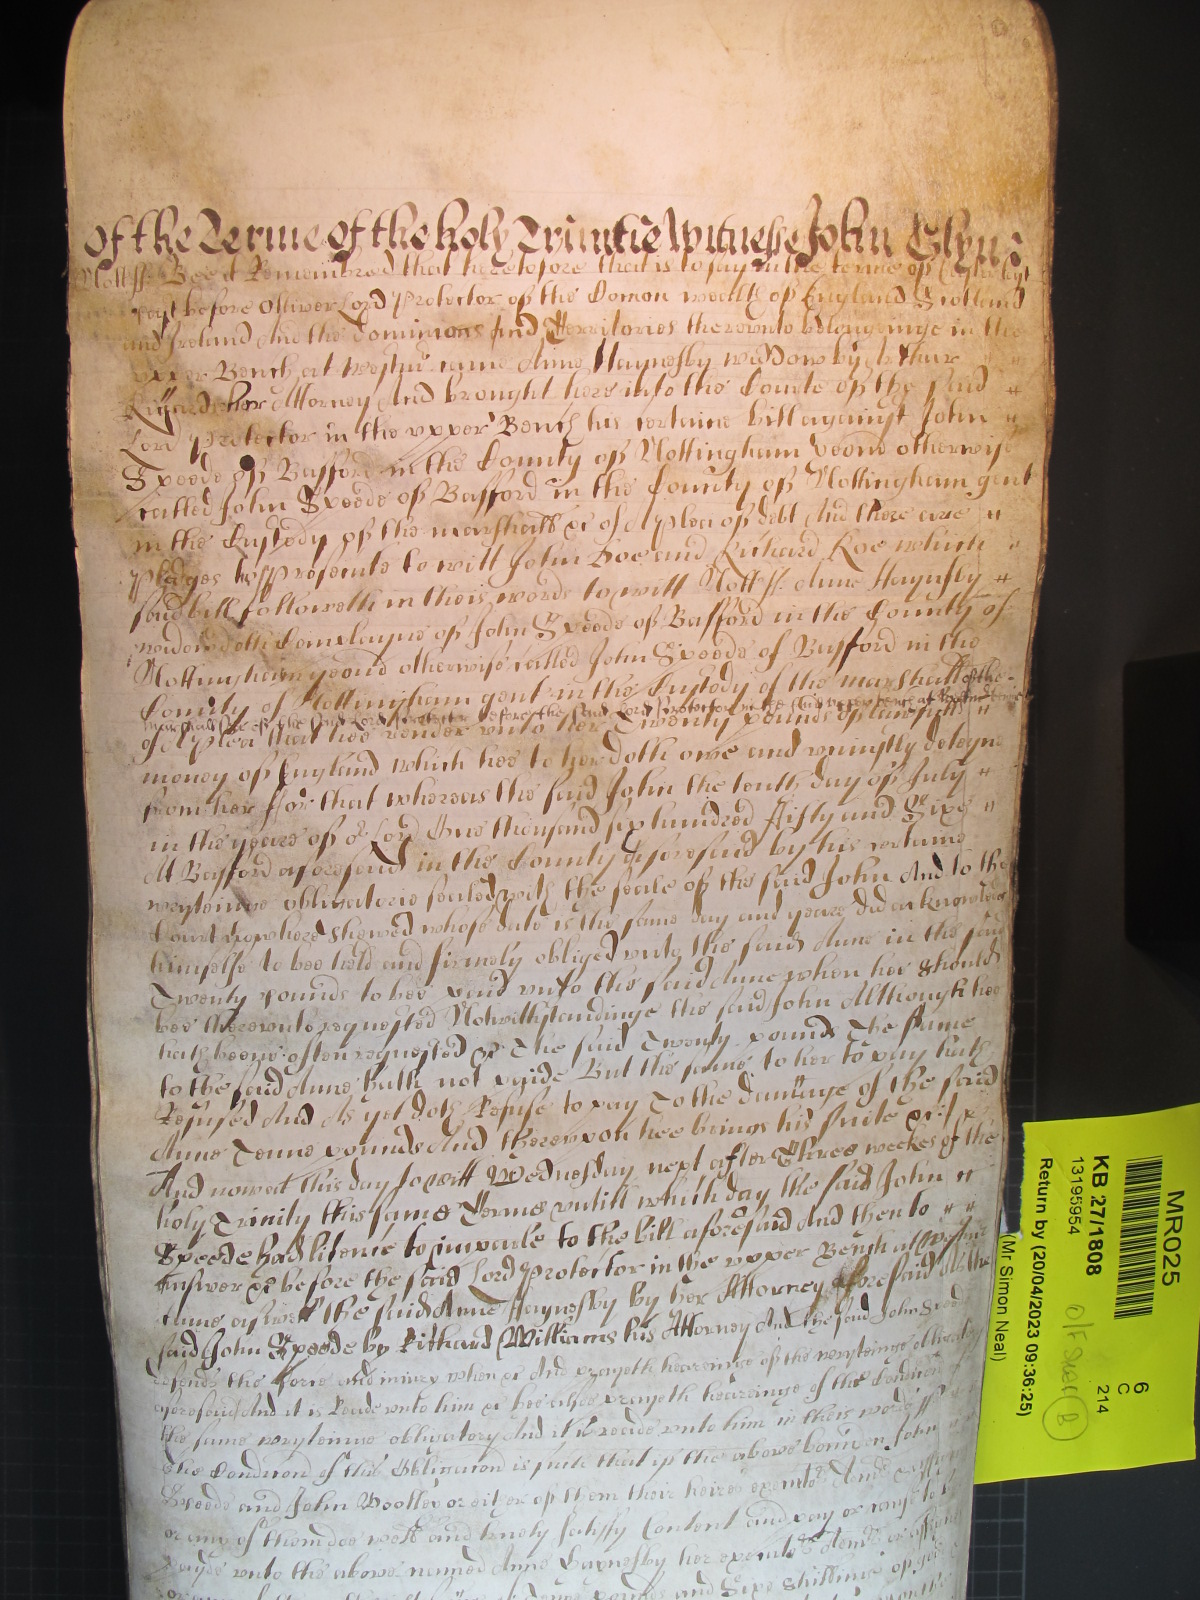 Of the Terme of the holy Trinitie Witnesse John Glyn
Notts ss. Bee it Remembred that heretofore that is to say in the terme of
past before Oliver Lord Protector of the Comon wealth of England Scotland
and Ireland And the dominions And Territories thereunto belonginge in the
upper Bench at Westmr came Anne Haynesby widdow by Arthur
her Attorney And brought here into the Courte of the said
Lord Protector in the upper Bench his certaine bill against John
Speede of Basford in the County of Nottingham yeom otherwise
called John Speede of Basford in the County of Nottingham gent
in the Custody of the marshall &c of A plea of debt And there are
pledges to prosecute to witt John Doe and Richard Roe which
said bill followeth in theis words to witt Notts ss. Anne Haynsby
widdow doth Complayne of John Speede of Basford in the County of
Nottingham yeom otherwise called John Speede of Basford in the
County of Nottingham gent in the Custody of the marshall of the
marshalsea of the said Lord Protector before the said Lord Protector in the said upper bench at Westmr
of A plea that hee render unto her Twenty pounds of lawfull
money of England which hee to her doth owe and uniustly deteyne
from her For that whereas the said John the tenth day of July
in the yeare of or Lord One thousand six hundred Fifty and Sixe
At Basford aforesaid in the County aforesaid by his certaine
wryteinge obligatorie sealed with the seale of the said John And to the
Court now here shewed whose date is the same day and yeare did acknowledge
himselfe to bee held and firmely obliged unto the said Anne in the said
Twenty pounds to bee paid unto the said Anne when hee should
bee thereunto requested Notwithstandinge the said John Although hee
hath beene often requested &c The said Twenty pounds The same
to the said Anne hath not paide But the same to her to pay hath
Refused And As yet doth Refuse to pay To the damage of the said
Anne Tenne pounds And thereupon hee brings his suite &c
And now att this day to witt Wednesday next after Three weekes of the
holy Trinity this same Terme untill which day the said John
Speede had licence to imparle to the bill aforesaid And then to
answer &c before the said Lord Protector in the upper Bench at Westmr
came aswell the said Anne Haynesby by her Attorney aforesaid as the
said John Speede by Richard Williams his Attorney And the said John Speede
defends the force and iniury when &c And prayeth heareinge of the wryteinge obligatory
aforesaid And it is Reade unto him &c hee alsoe prayeth heareinge of the Condicion of
the same wryteinge obligatory And it is reade unto him in theis words ss
The Condicion of this Obligacion is such that if the above bounden John
Speede and John Woolley or either of them their heires executrs Admrs
or any of them doe well and truely satisfy Content and pay or cause to be
payde unto the above named Anne Haynesby her executrs Admrs or assignes
pounds and Sixe shillings of
MR025
6
C
214
KB 27/1808
13195954
Return by (20/04/2023 09:36:25)
(Mr Simon Neal)
B